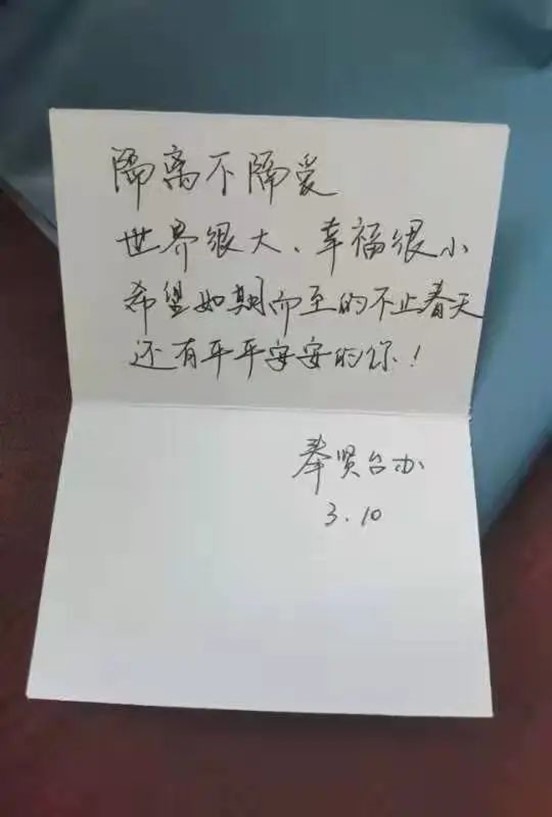 隔离不隔爱
世界很大、幸福很小
希望如期而至的不止春天
还有平平安安的你！
奉贤台办
3.10